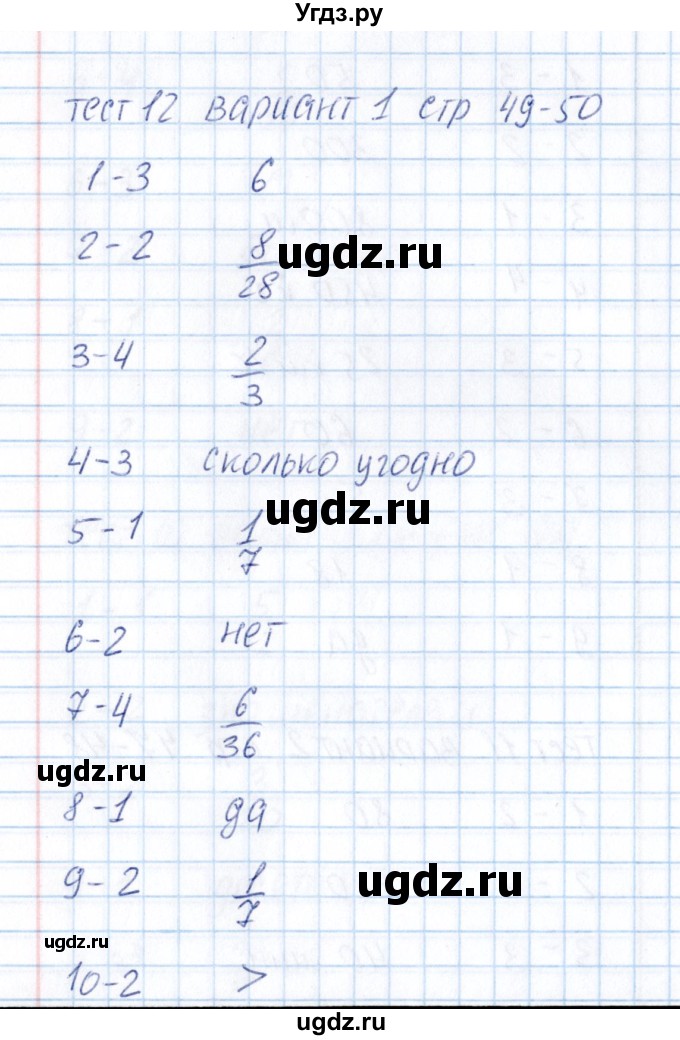 Угдз.ру
тест 12 вариант 1 стр 49-50
1-3 6
2-2 8/28
ugdz.ru
3-4 2/3
4-3 сколько угодно
ugdz.ru
5-1 1/7
6-2 нет
7-4 6/36
ugdz.ru
8-1 да
9-2 1/7
ugdz.ru
ugdz.ru
10-2 >
ugdz.ru